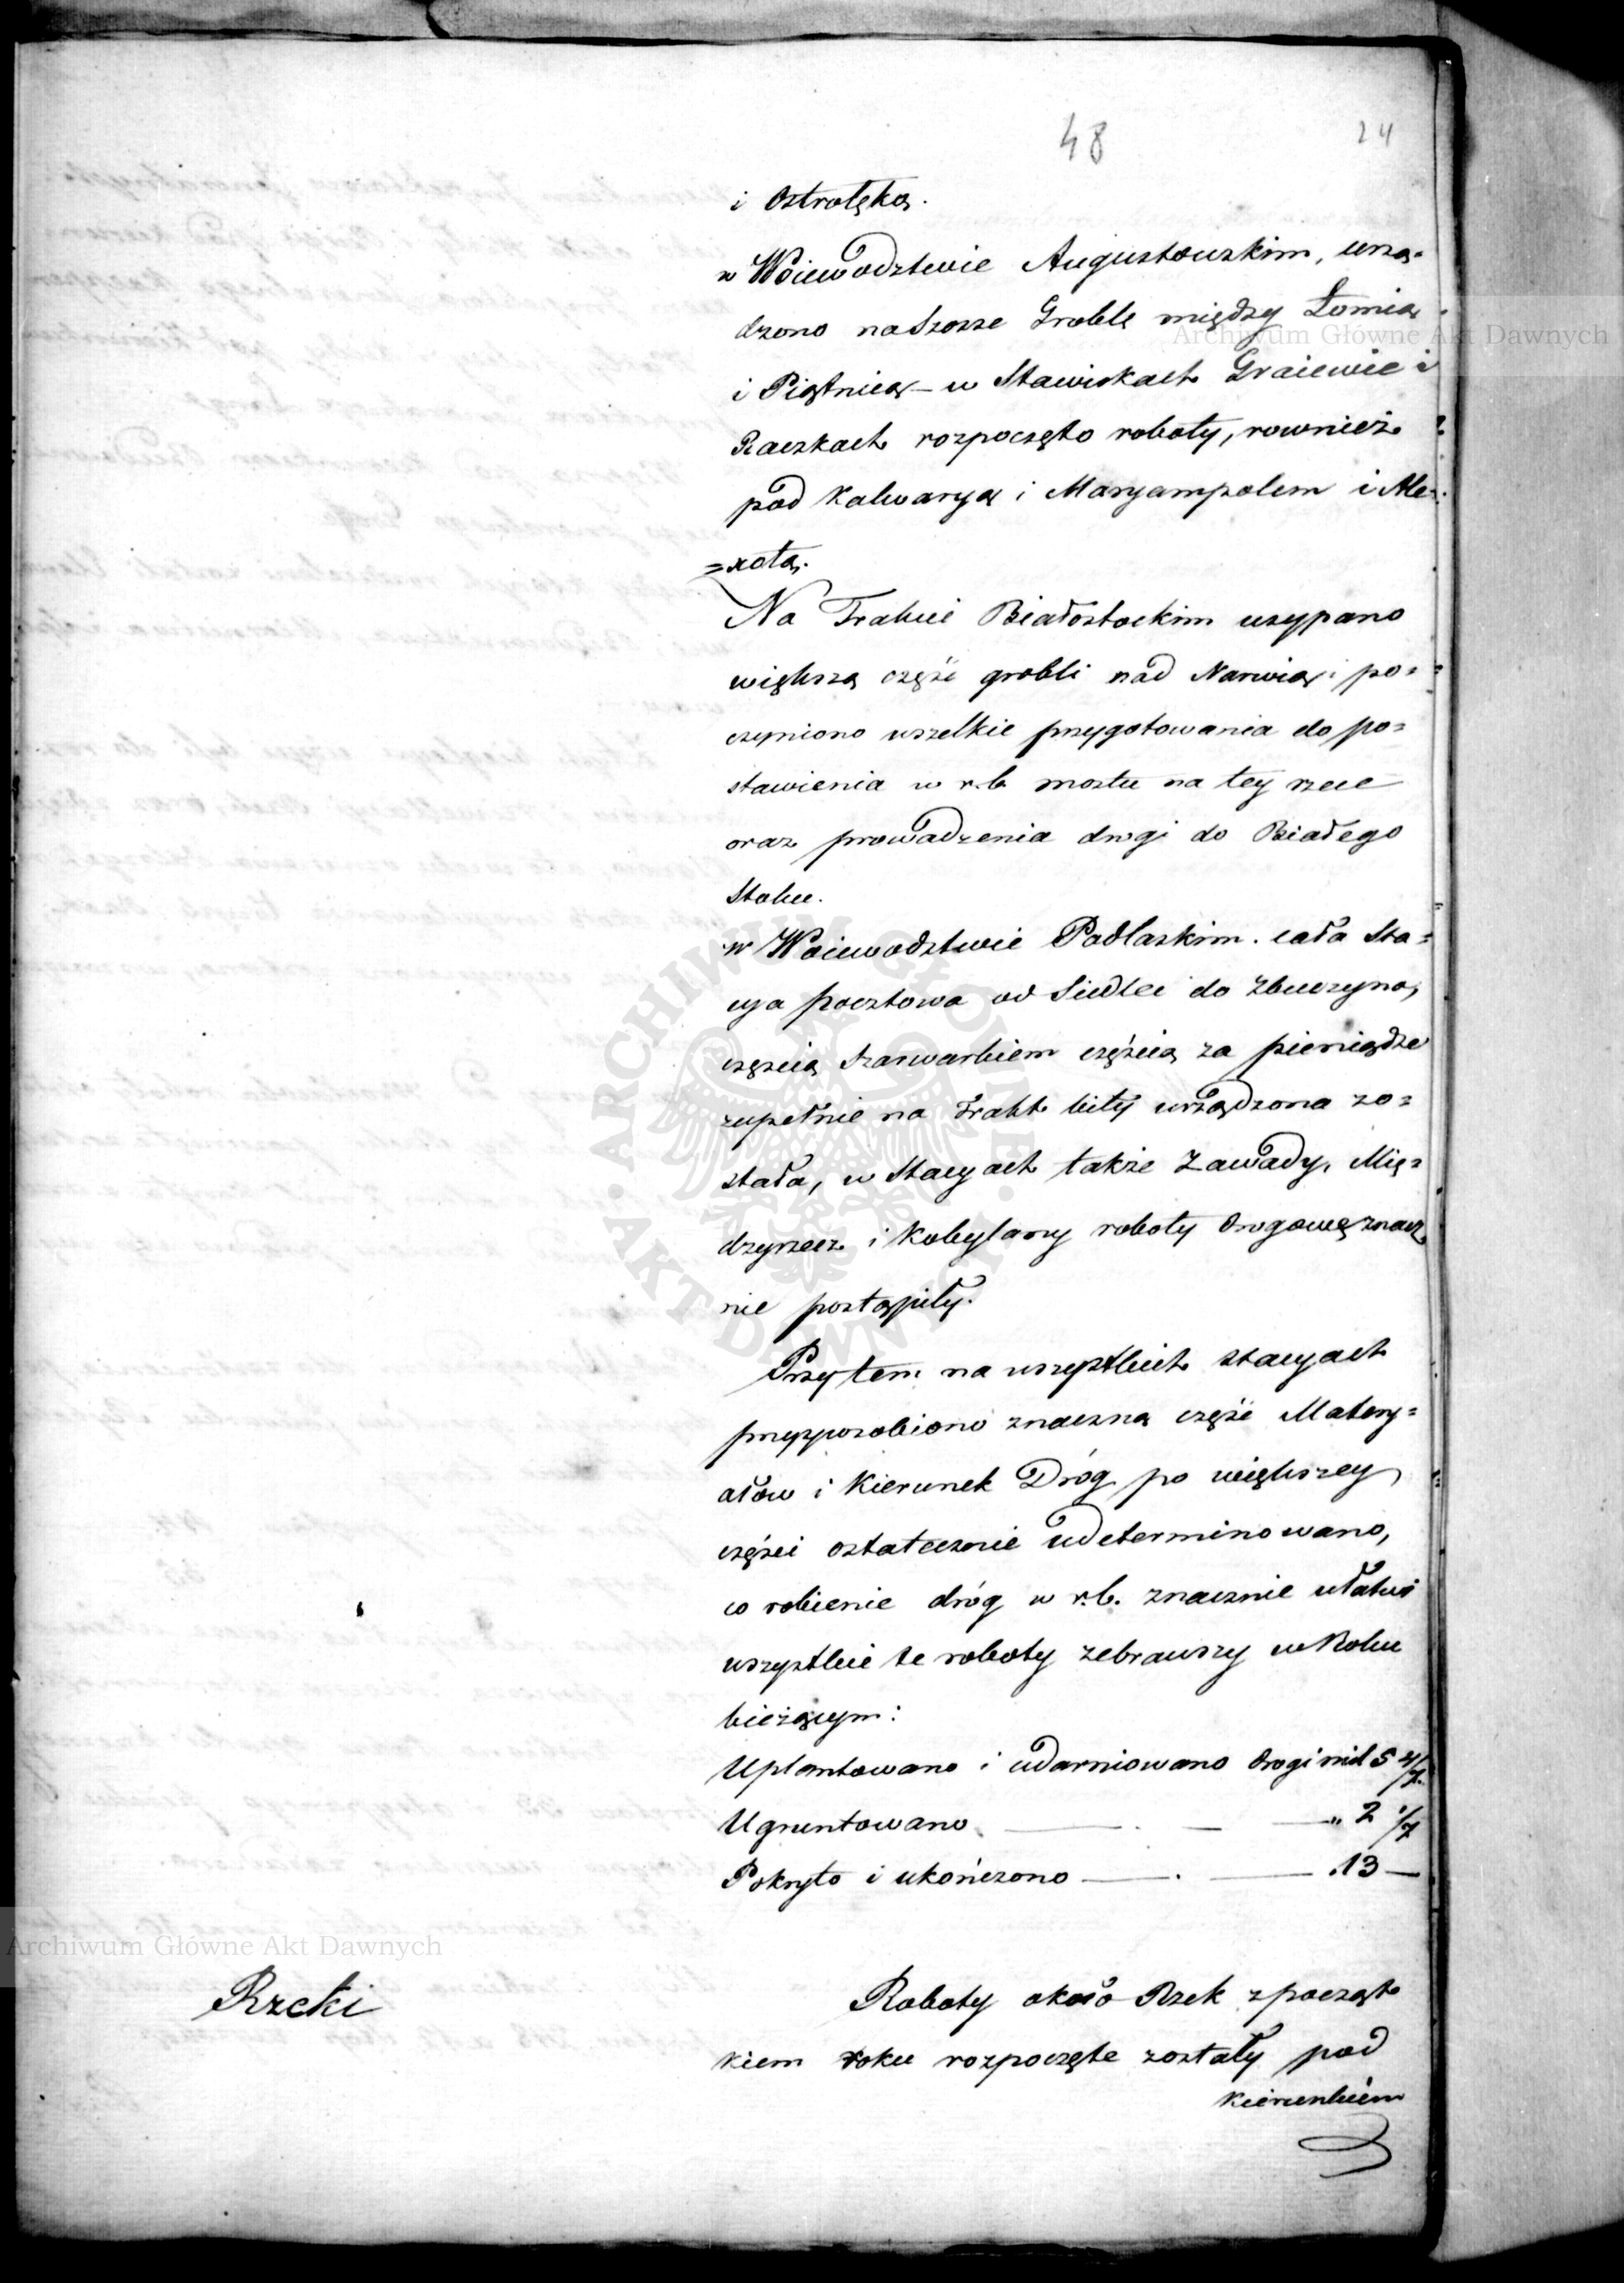 48 24
i Ostrołęką.
w Woiewodztwie Augustowskim, urzą-
dzono na Szosse Groble między Łomżą
i Piątnicą – w Stawiskach Graiewie i
Raczkach rozpoczęto roboty, rownież
pod Kalwaryą i Maryampolem i Ale=
=xotą.
Na Trakcie Białostockim usypano
większą część grobli nad Narwią i po=
czyniono wszelkie przygotowania do po=
stawienia w r.b. mostu na tey rzece
oraz prowadzenia drogi do Białego
Stoku.
w Woiewodztwie Podlaskim. cała Sta=
cya pocztowa od Siedlec do Zbuczyna,
częścią Szarwarkiem częścią za pieniądze
zupełnie na Trakt bity urządzona zo=
stała, w Stacyach także Zawady, Mię=
dzyrzecz i Kobylany roboty drogowe znacz
nie postąpiły.
Przytem na wszystkich stacyach
przysposobiono znaczną część Matery=
ałów i Kierunek Dróg po większey
części ostatecznie udeterminowano,
co robienie dróg w r.b. znacznie ułatwi
wszystkie te roboty zebrawszy w Roku
bieżącym:
Uplantowano i udarniowano drogi mil 5 4/7.
Ugruntowano — . — — „ 2 1/7
Pokryto i ukończono — . — . 13 —
Rzeki
Roboty około Rzek z począt
kiem roku rozpoczęte zostały pod
kierunkiem
Archiwum Główne Akt Dawnych
Archiwum Główne Akt Dawnych
ARCHIWUM GŁÓWNE · AKT DAWNYCH ·